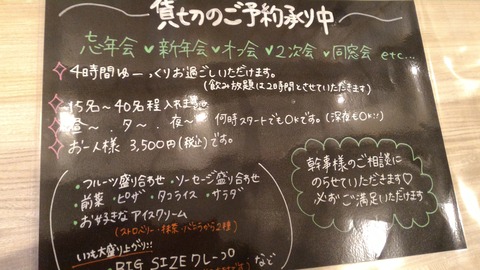 貸切のご予約承り中
忘年会 ♥ 新年会 ♥ オフ会 ♥ 2次会 ♥ 同窓会 etc...
4時間ゆーっくりお過ごしいただけます。
(飲み放題は2時間とさせていただきます)
15名〜40名程 入れます
昼〜・夕〜・夜〜 何時スタートでもOKです。(深夜もOK!!)
お一人様 3,500円(税込)です。
・フルーツ盛り合わせ ・ソーセージ盛り合わせ
・前菜 ・ピザ ・タコライス ・サラダ
・お好きなアイスクリーム
(ストロベリー・抹茶・バニラから2種)
いつも大盛り上がり!!
・BIG SIZEクレープ
など
幹事様のご相談に
のらせていただきます♡
必ずご満足いただけます